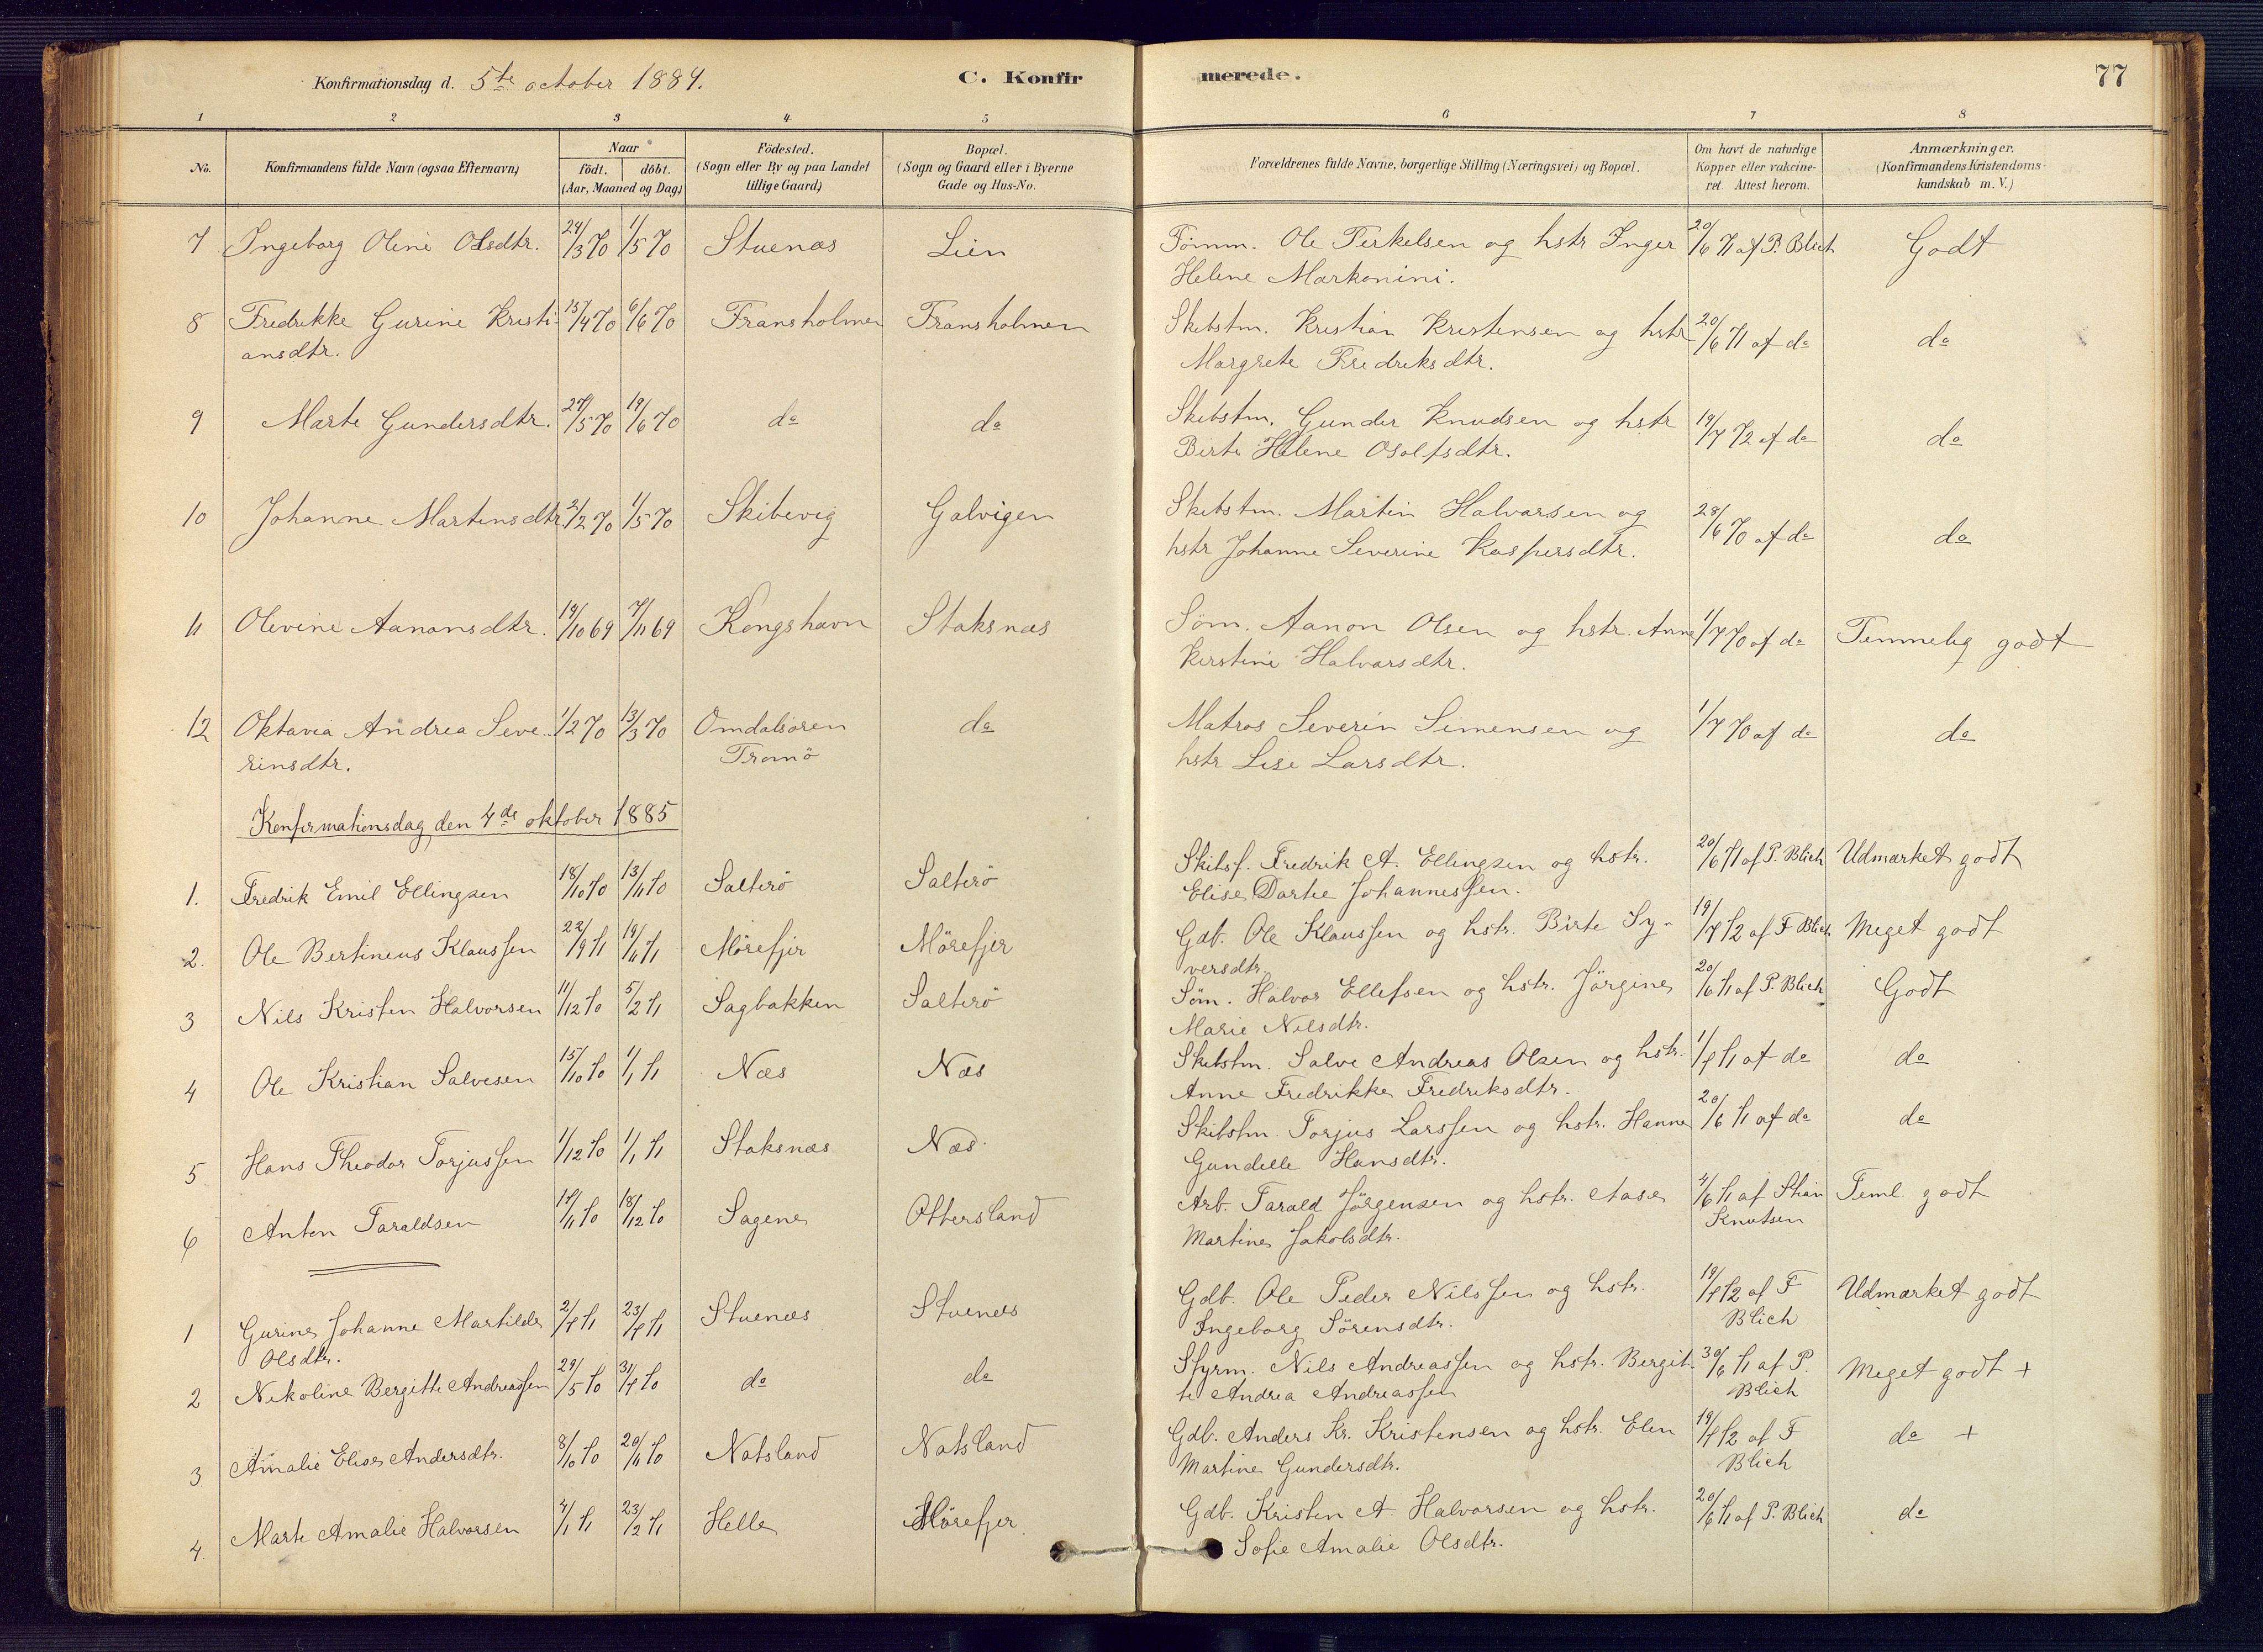 Konfirmationsdag d. 5te october 1884.
C. Konfirmerede.
77
1 2 3 4 5 6 7 8
No.
Konfirmandens fulde Navn (ogsaa Efternavn)
Naar
födt. döbt.
(Aar, Maaned og Dag)
Födested.
(Sogn eller By og paa Landet
tillige Gaard)
Bopæl.
(Sogn og Gaard eller i Byerne
Gade og Hus-No.
Forældrenes fulde Navne, borgerlige Stilling (Næringsvei) og Bopæl.
Om havt de naturlige
Kopper eller vakcine-
ret. Attest herom.
Anmærkninger.
(Konfirmandens Kristendoms-
kundskab m. V.)
7 Ingeborg Oline Olsdtr. 24/3 70 1/5 70 Stuenæs Lien Tömm. Ole Terkelsen og hstr Inger 20/6 71 af P. Blich Godt
Helene Markonini.
8 Fredrikke Gurine Kristi- 15/4 70 6/6 70 Fransholmen Fransholmen Skibstm. Kristian Kristensen og hstr 20/6 71 af do do
ansdtr. Margrete Fredriksdtr.
9 Marte Gundersdtr. 27/5 70 19/6 70 do do Skibstm. Gunder Knudsen og hstr 19/7 72 af do do
Birte Helene Osolfsdtr.
10 Johanne Martinsdtr. 2/2 70 1/5 70 Skibevig Galvigen Skibstm. Martin Halvorsen og 28/6 70 af do do
hstr Johanne Severine Kaspersdtr.
11 Olevine Aanonsdtr. 19/10 69 7/11 69 Kongshavn Staksnæs Söm. Aanon Olsen og hstr. Anne 1/7 70 af do Temmelig godt
Kirstine Halvorsdtr.
12 Oktavia Andrea Seve- 1/2 70 13/3 70 Omdalsören do Matros Severin Simensen og 1/7 70 af do do
rinsdtr. Tromö hstr Lise Larsdtr.
Konfirmationsdag den 4de oktober 1885
1. Fredrik Emil Ellingsen 18/10 70 13/11 70 Salterö Salterö Skibsf. Fredrik A. Ellingsen og hstr. 20/6 71 af P. Blich Udmærket godt
Elise Dortie Johannessen.
2. Ole Bertineus Klaussen 22/9 71 19/11 71 Mörefjer Mörefjer Gdb. Ole Klaussen og hstr. Birte Sy- 19/7 72 af F Blich Meget godt
versdtr.
3 Nils Kristen Halvorsen 11/12 70 5/2 71 Sagbakken Salterö Söm. Halvor Ellefsen og hstr. Jörgine 20/6 71 af P. Blich Godt
Marie Nilsdtr.
4 Ole Kristian Salvesen 15/10 70 1/1 71 Næs Næs Skibstm. Salve Andreas Olsen og hstr. 1/7 71 af do do
Anne Fredrikke Fredriksdtr.
5 Hans Theodor Torjussen 1/12 70 1/1 71 Staksnæs Næs. Skibstm. Torjus Larssen og hstr. Hanne 20/6 71 af do do
Gundelle Hansdtr.
6 Anton Taraldsen 17/11 70 18/12 70 Sagene Ottersland Arb. Tarald Jörgensen og hstr. Aase 4/6 71 af Stian Teml. godt
Martine Jakobsdtr. Knutsen
1 Gurine Johanne Martilde 2/7 71 23/7 71 Stuenæs Stuenæs Gdb. Ole Peder Nilssen og hstr. 19/7 72 af F Udmærket godt
Olsdtr. Ingeborg Sörensdtr. Blich
2 Nikoline Bergitte Andreassen 29/5 70 31/7 70 do do Styrm. Nils Andreassen og hstr. Bergit- 30/6 71 af P. Meget godt +
te Andrea Andreassen Blich
3. Amalie Elise Andersdtr. 8/10 70 20/11 70 Natsland Natsland Gdb. Anders Kr. Kristensen og hstr. Elen 19/7 72 af F do +
Martine Gundersdtr. Blich
4. Marte Amalie Halvorsen 4/1 71 23/2 71 Helle Mörefjer. Gdb. Kristen A. Halvorsen og hstr. 20/6 71 af P. Blich do
Sofie Amalie Olsdtr.